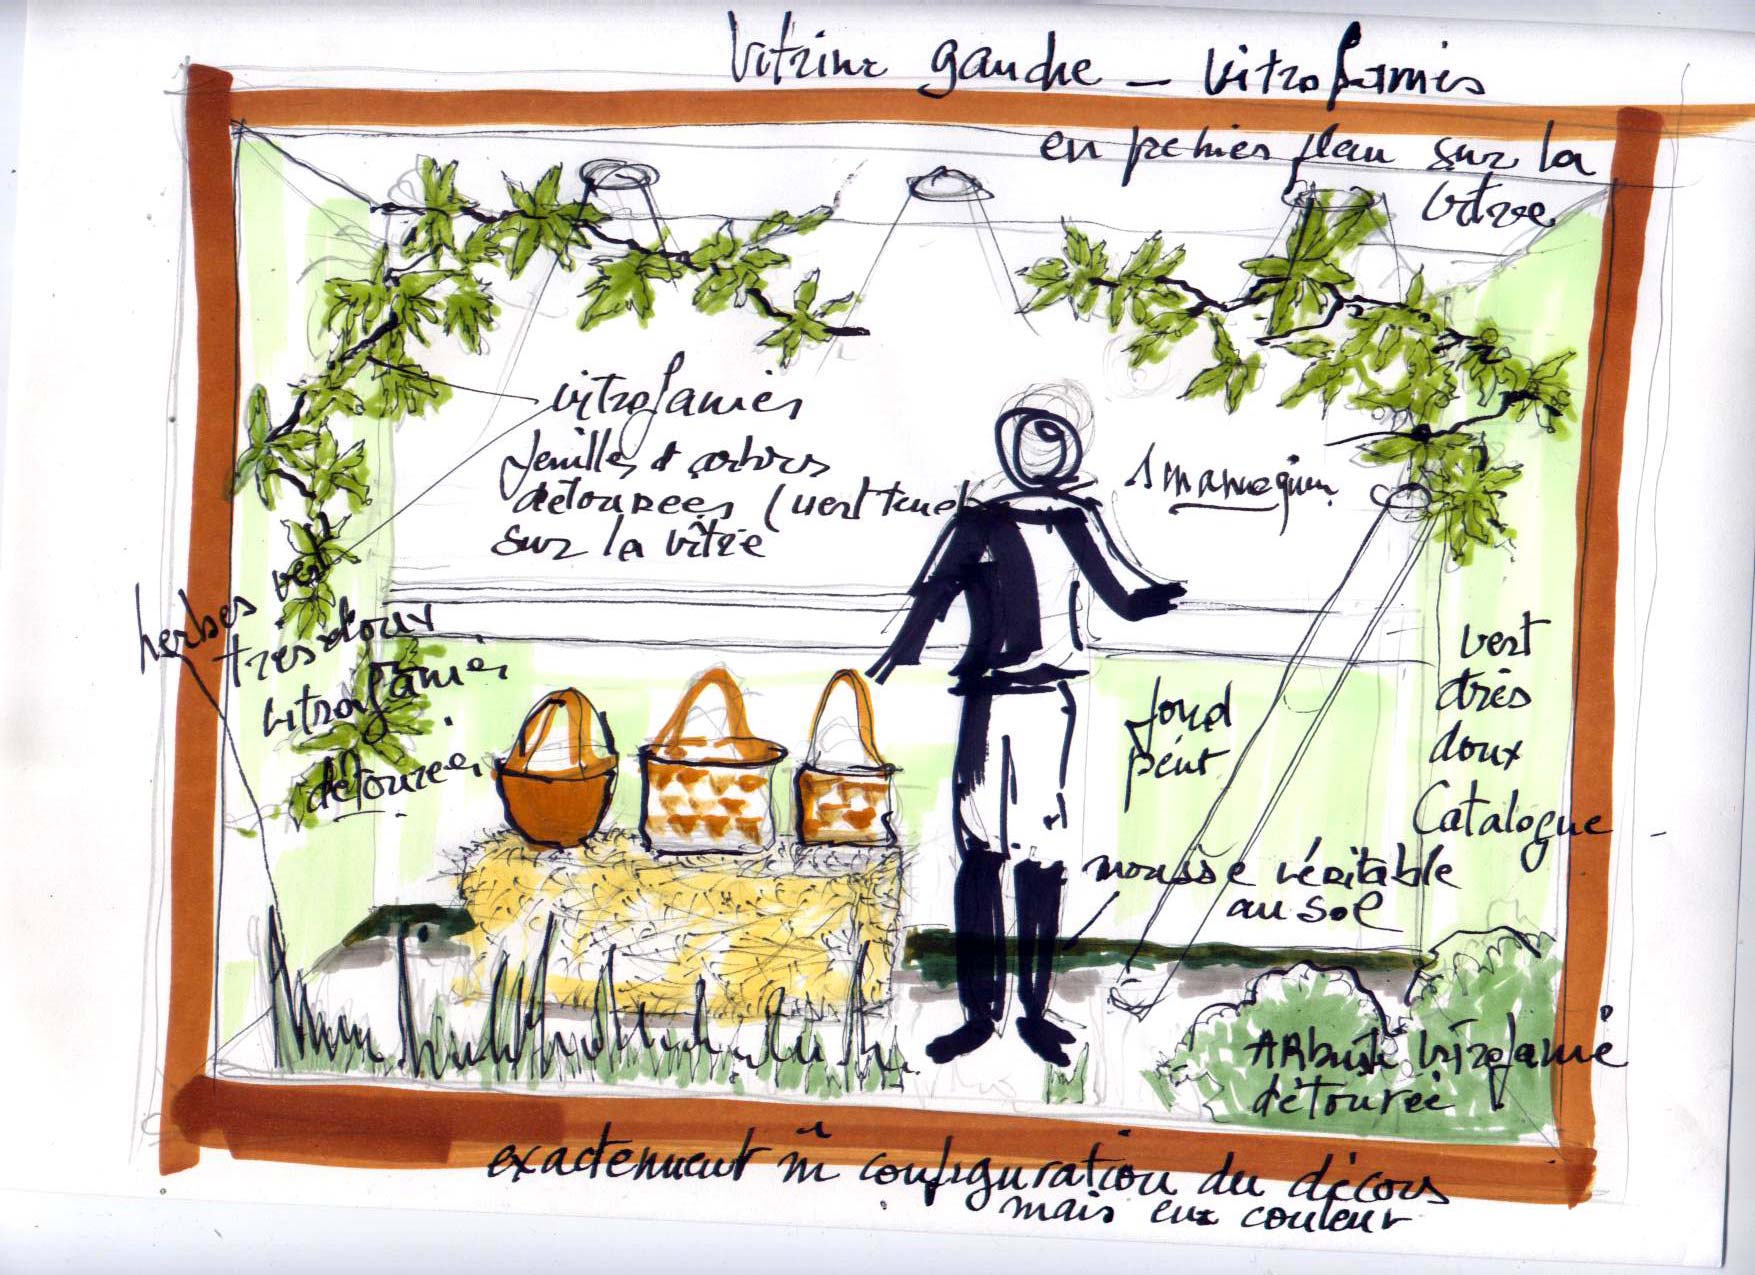 Vitrine gauche - Vitrofanies
en premier plan sur la
vitre
vitrofanies
feuilles d'arbres
détourées (vert tendre
sur la vitre
1 mannequin
herbes vert
très doux
vitrofanies
détourées
fond
peint
vert
très
doux
Catalogue
mousse véritable
au sol
Arbuste vitrofanie
détourée
exactement m̂ configuration du décors
mais en couleur